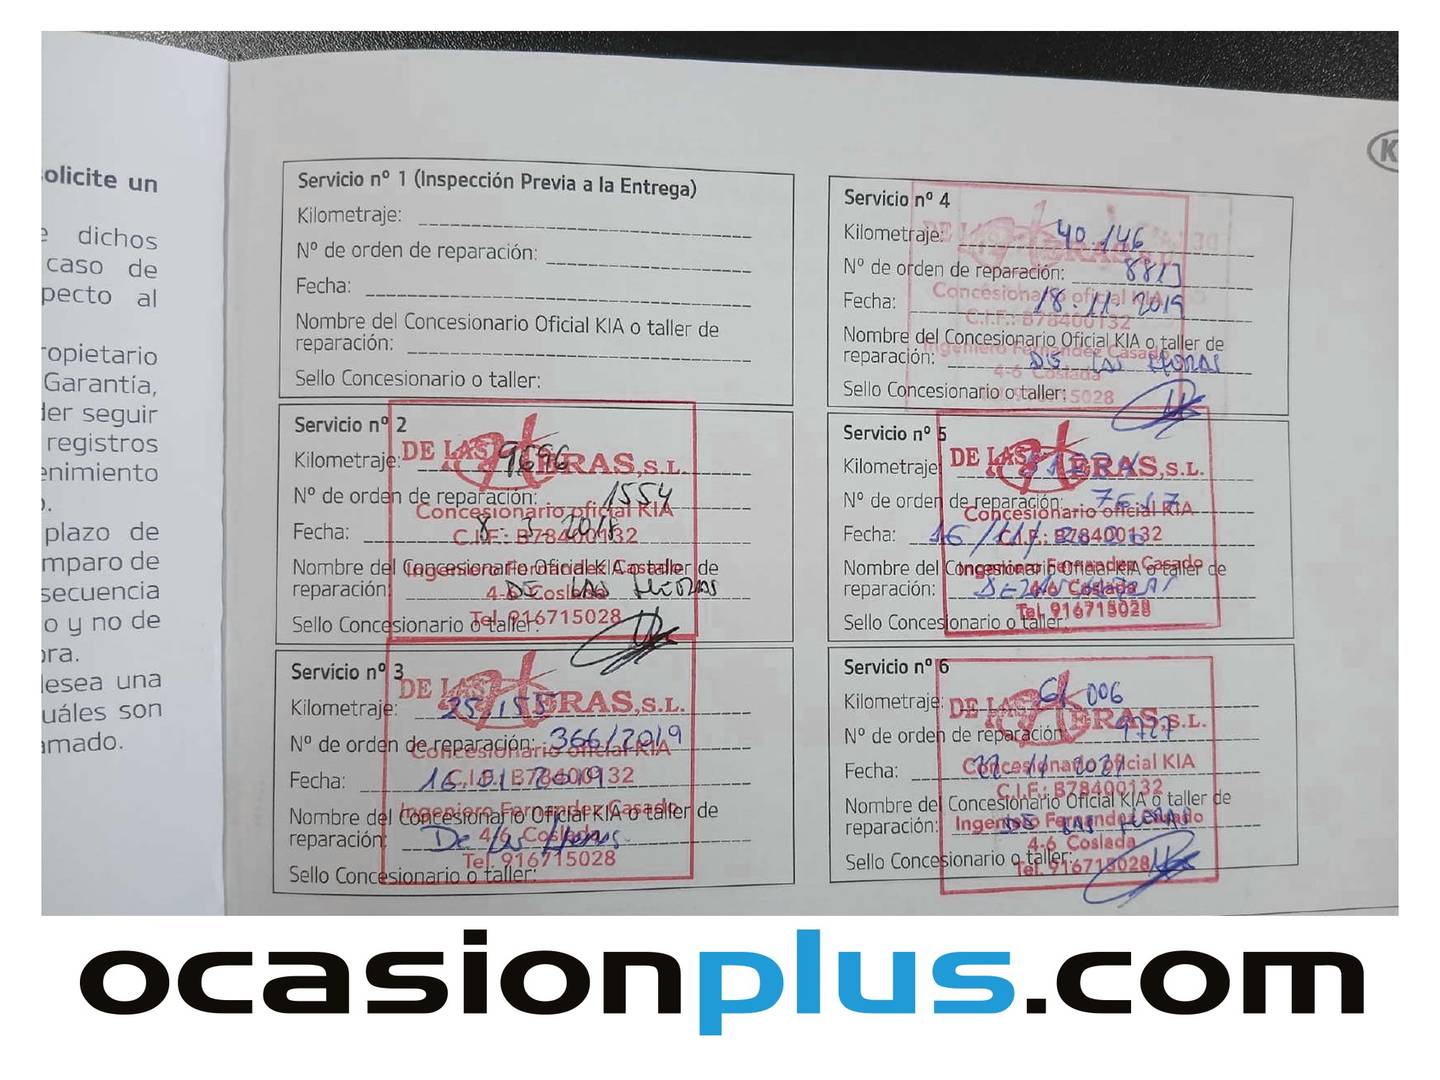 olicite un
dichos
caso de
pecto al
ropietario
Garantía,
der seguir
registros
enimiento
plazo de
mparo de
secuencia
o y no de
ora.
esea una
uáles son
amado.
Servicio nº 1 (Inspección Previa a la Entrega)
Kilometraje:
Nº de orden de reparación:
Fecha:
Nombre del Concesionario Oficial KIA o taller de
reparación:
Sello Concesionario o taller:
Servicio nº 2
Kilometraje: 9696
Nº de orden de reparación: 1554
Fecha: 8-3-2018
Nombre del Concesionario Oficial KIA o taller de
reparación: DE LAS HERAS
Sello Concesionario o taller:
DE LAS HERAS, S.L.
Concesionario oficial KIA
C.I.F.: B78400132
Ingeniero Fernandez Casado
4-6 Coslada
Tel. 916715028
Servicio nº 3
Kilometraje: 25/155
Nº de orden de reparación: 366/2019
Fecha: 16.01.2019
Nombre del Concesionario Oficial KIA o taller de
reparación: De las Heras
Sello Concesionario o taller:
DE LAS HERAS, S.L.
Concesionario oficial KIA
C.I.F.: B78400132
Ingeniero Fernandez Casado
4-6 Coslada
Tel. 916715028
K
Servicio nº 4
Kilometraje: 40.146
Nº de orden de reparación:
Fecha: 18-11-2019
Nombre del Concesionario Oficial KIA o taller de
reparación: DE LAS HERAS
Sello Concesionario o taller:
DE LAS HERAS, S.L.
Concesionario oficial KIA
C.I.F.: B78400132
Ingeniero Fernandez Casado
4-6 Coslada
Tel. 916715028
Servicio nº 5
Kilometraje:
Nº de orden de reparación:
Fecha: 16/11/
Nombre del Concesionario Oficial KIA o taller de
reparación: DE LAS HERAS
Sello Concesionario o taller:
DE LAS HERAS, S.L.
Concesionario oficial KIA
C.I.F.: B78400132
Ingeniero Fernandez Casado
4-6 Coslada
Tel. 916715028
Servicio nº 6
Kilometraje: 61 006
Nº de orden de reparación: 9727
Fecha: 22-11-2021
Nombre del Concesionario Oficial KIA o taller de
reparación: DE LAS HERAS
Sello Concesionario o taller:
DE LAS HERAS, S.L.
Concesionario oficial KIA
C.I.F.: B78400132
Ingeniero Fernandez Casado
4-6 Coslada
Tel. 916715028
ocasionplus.com